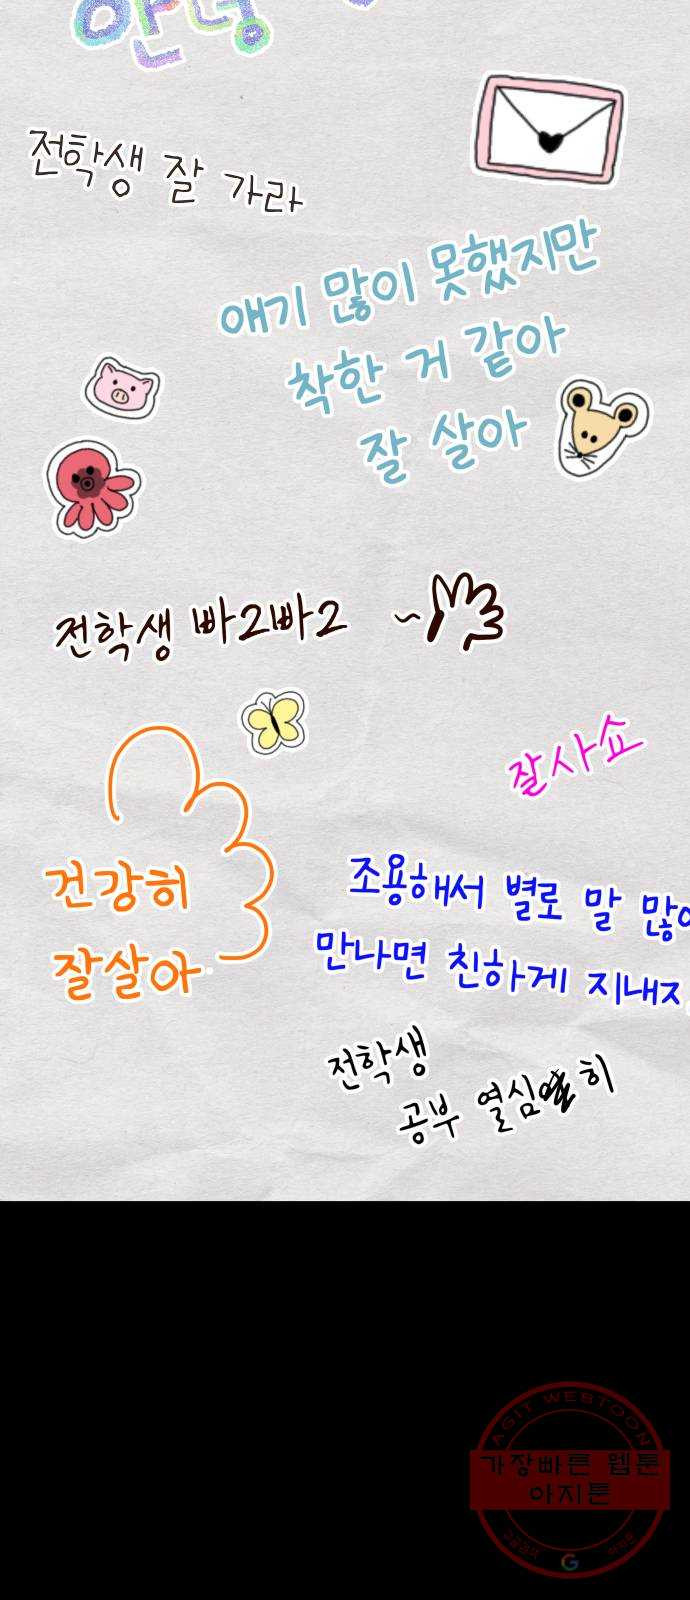 안녕
전학생 잘 가라
얘기 많이 못했지만
착한 거 같아
잘 살아
전학생 빠2빠2 ~
잘사쇼
건강히
잘살아
조용해서 별로 말 많이
만나면 친하게 지내자
전학생
공부 열심히
AGIT WEBTOON
가장빠른 웹툰
아지툰